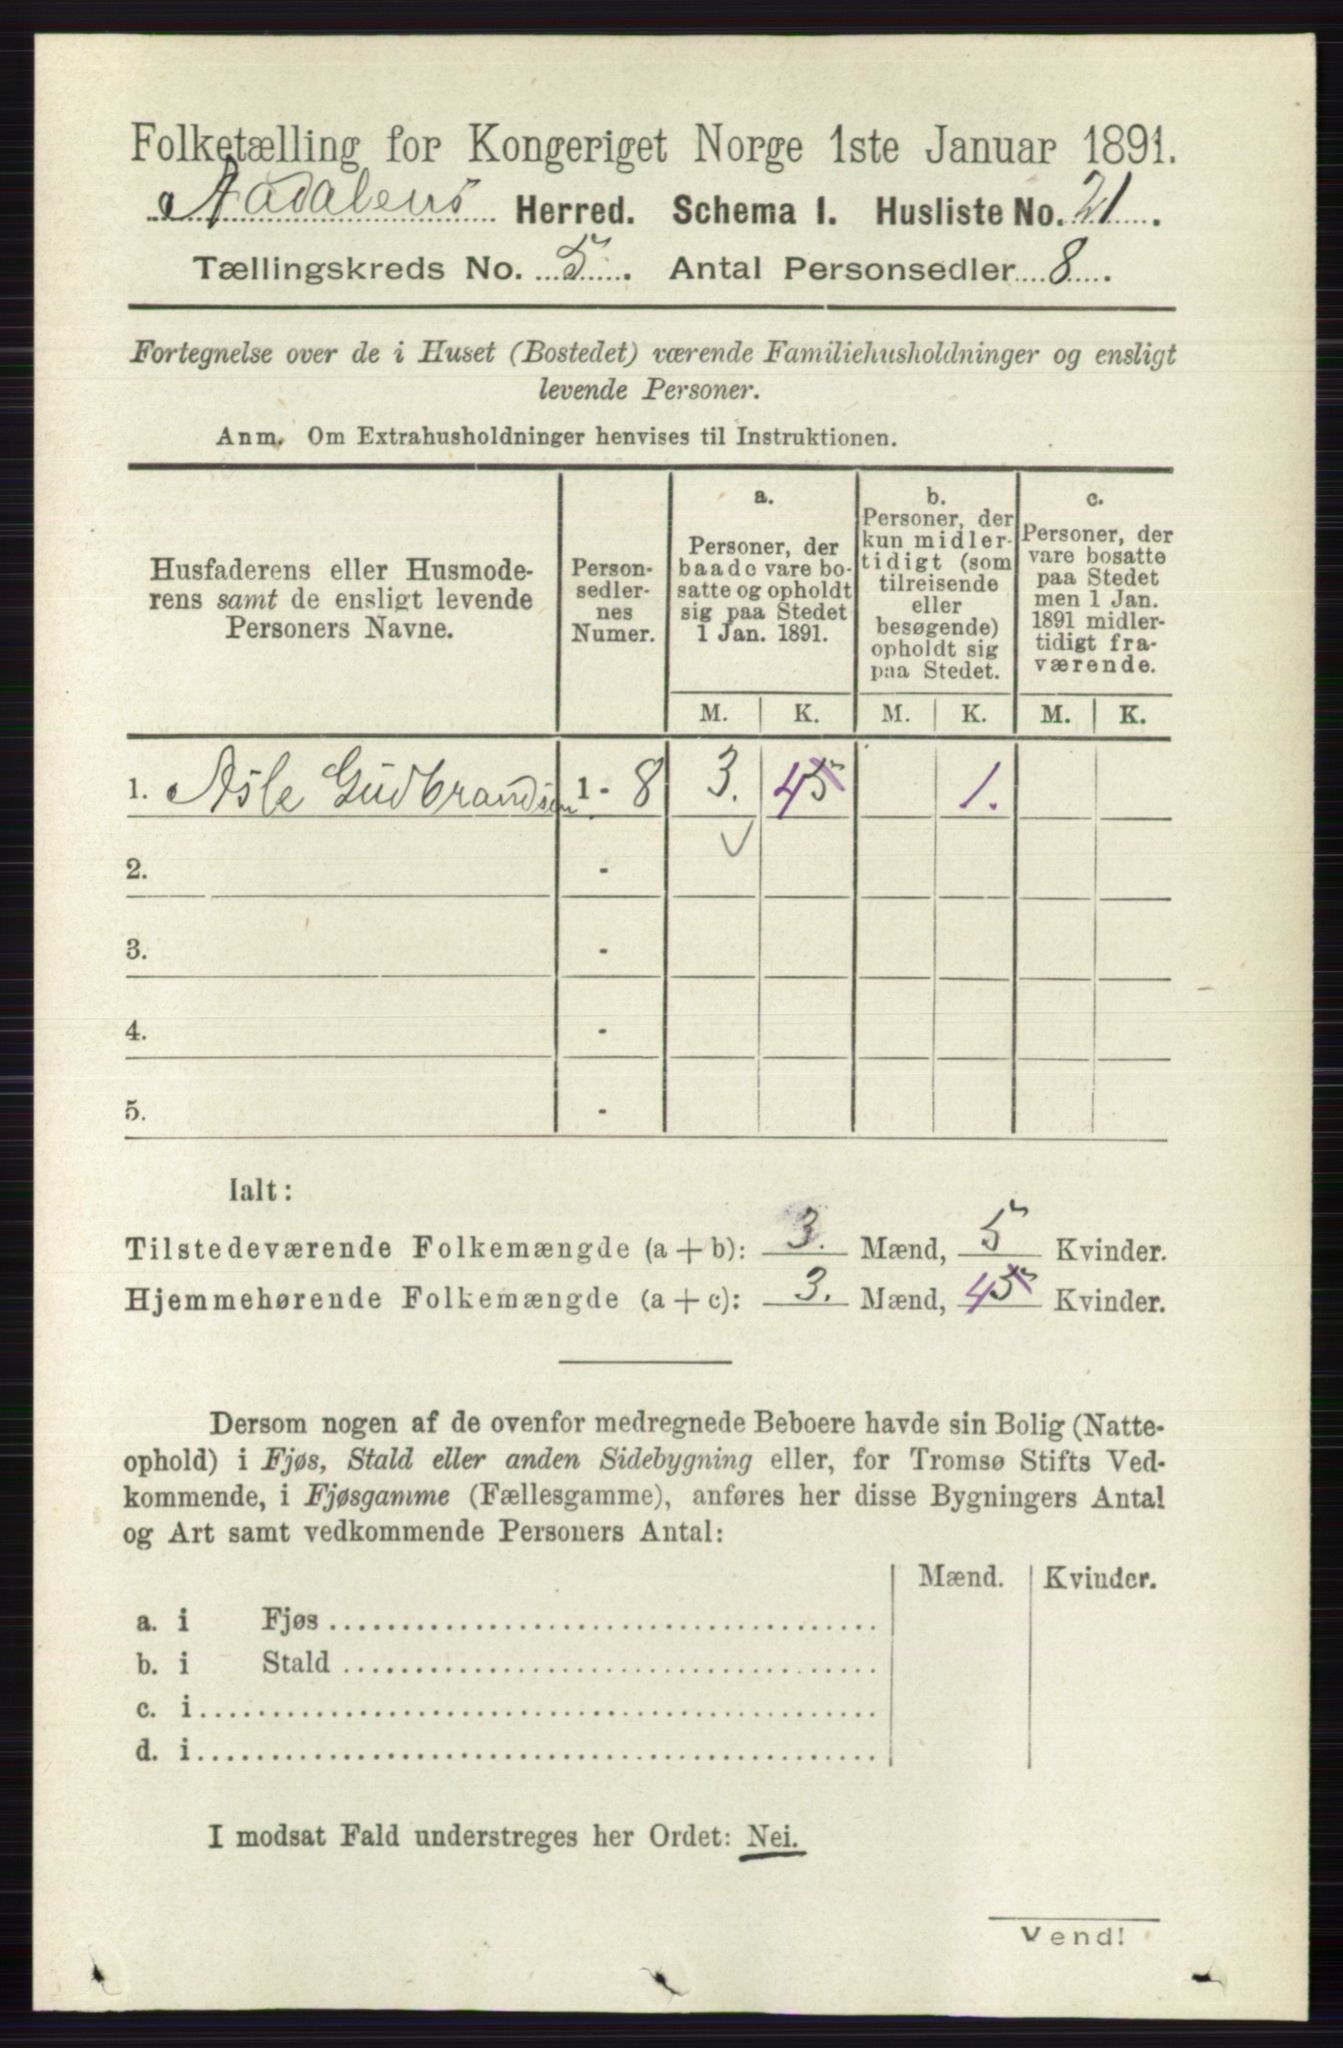 Folketælling for Kongeriget Norge 1ste Januar 1891.
Aadalens Herred. Schema I. Husliste No. 21.
Tællingskreds No. 5. Antal Personsedler 8.
Fortegnelse over de i Huset (Bostedet) værende Familiehusholdninger og ensligt
levende Personer.
Anm. Om Extrahusholdninger henvises til Instruktionen.
Husfaderens eller Husmode-
rens samt de ensligt levende
Personers Navne.
Person-
sedler-
nes
Numer.
a.
Personer, der
baade vare bo-
satte og opholdt
sig paa Stedet
1 Jan. 1891.
b.
Personer, der
kun midler-
tidigt (som
tilreisende
eller
besøgende)
opholdt sig
paa Stedet.
c.
Personer, der
vare bosatte
paa Stedet
men 1 Jan.
1891 midler-
tidigt fra-
værende.
M. K. M. K. M. K.
1. Asle Gudbrandsen 1 - 8 3. 4 5 1.
2. -
3. -
4. -
5. -
Ialt:
Tilstedeværende Folkemængde (a + b): 3. Mænd, 5 Kvinder.
Hjemmehørende Folkemængde (a + c): 3. Mænd, 4 5 Kvinder.
Dersom nogen af de ovenfor medregnede Beboere havde sin Bolig (Natte-
ophold) i Fjøs, Stald eller anden Sidebygning eller, for Tromsø Stifts Ved-
kommende, i Fjøsgamme (Fællesgamme), anføres her disse Bygningers Antal
og Art samt vedkommende Personers Antal:
Mænd. Kvinder.
a. i Fjøs
b. i Stald
c. i
d. i
I modsat Fald understreges her Ordet: Nei.
Vend!